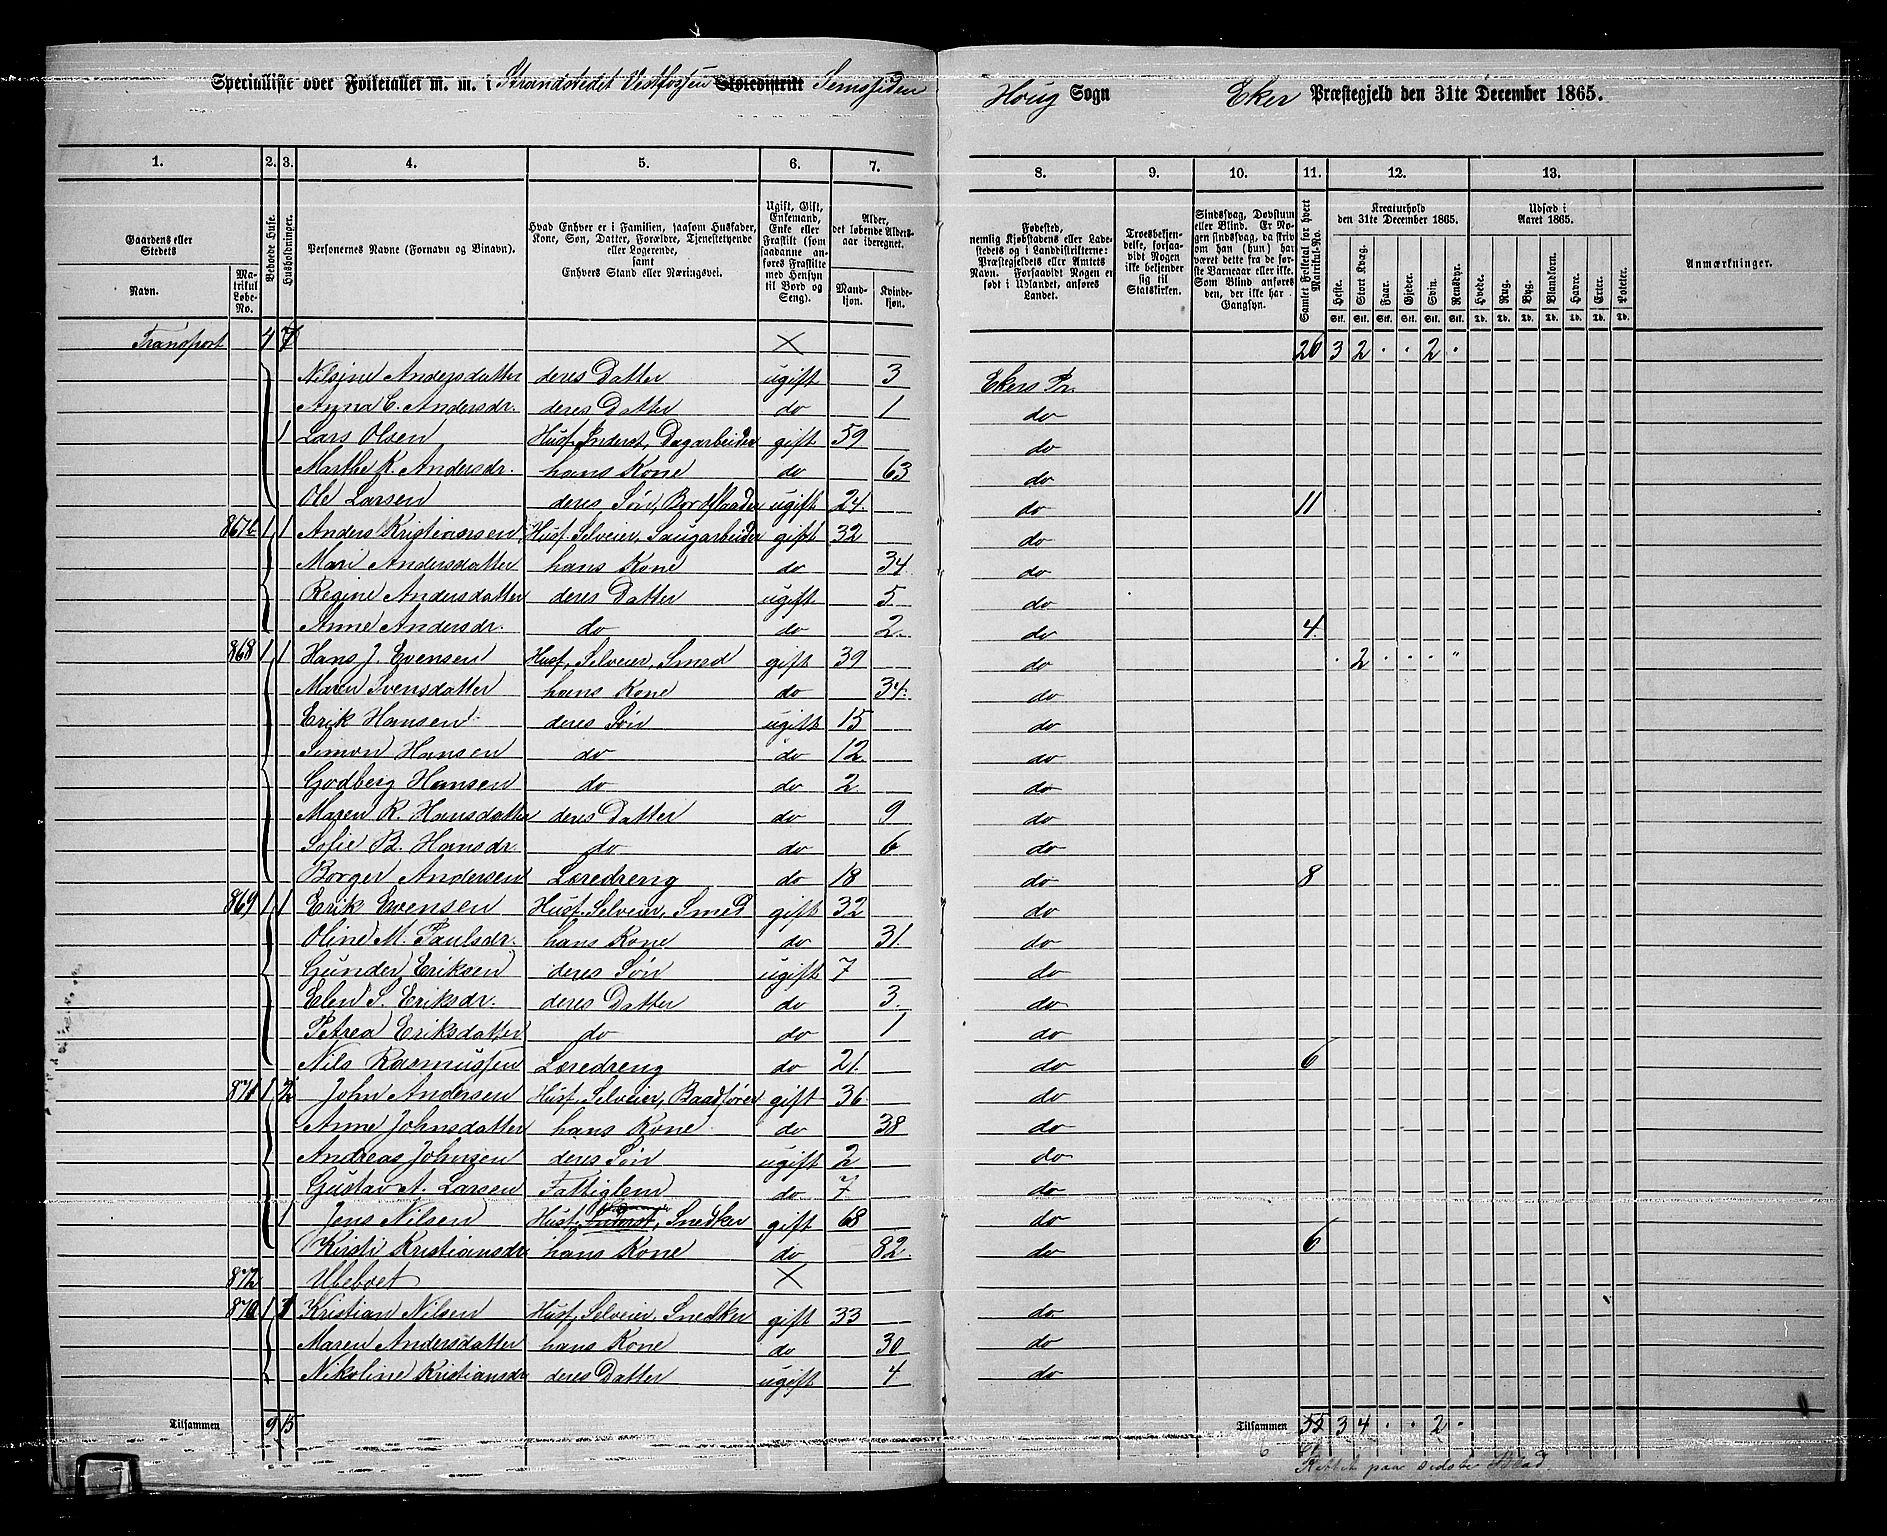 Specialliste over Folketallet m. m. i Strandstedet Vestfossen Skoledistrikt Semssiden Houg Sogn Eker Præstegjeld den 31te December 1865.
1. 2. 3. 4. 5. 6. 7. 8. 9. 10. 11. 12. 13.
Gaardens eller Stedets Navn. Matrikul Løbe-No. Beboede Huse. Husholdninger. Personernes Navne (Fornavn og Binavn). Hvad Enhver er i Familien, saasom Husfader, Kone, Søn, Datter, Forældre, Tjenestetyende eller Logerende, samt Enhvers Stand eller Næringsvei. Ugift, Gift, Enkemand, Enke eller Fraskilt (som saadanne anføres Fraskilte med Hensyn til Bord og Seng). Alder, det løbende Aldersaar iberegnet. Mandkjøn. Kvindekjøn. Fødested, nemlig Kjøbstadens eller Ladestedets eller i Landdistrikterne: Præstegjeldets eller Amtets Navn. Forsaavidt Nogen er født i Udlandet, anføres Landet. Troesbekjendelse, forsaavidt Nogen ikke bekjender sig til Statskirken. Sindssvag, Døvstum eller Blind. Er Nogen sindssvag, da skriv om han (hun) har været dette fra de første Barneaar eller ikke. Som Blind anføres den, der ikke har Gangsyn. Samlet Folketal for hvert Matrikul-No. Kreaturhold den 31te December 1865. Heste. Stort Kvæg. Faar. Gjeder. Svin. Rensdyr. Udsæd i Aaret 1865. Hvede. Rug. Byg. Blandkorn. Havre. Erter. Poteter. Anmærkninger.
Stk. Stk. Stk. Stk. Stk. Stk. Td. Td. Td. Td. Td. Td. Td.
Transport 4 7 × 20 3 2 . . 2 .
Nilsine Andersdatter deres Datter ugift 3 Ekers Pr.
Anna C. Andersdr. deres Datter do 1 do
1 Lars Olsen Husf. Inderst, Dagarbeider gift 59 do
Marthe K. Andersdr. hans Kone do 63 do
Ole Larsen deres Søn, ugift 24 do 11
1 1 Anders Kristiansen Husf. Selveier, Saugarbeider gift 32 do
Mari Andersdatter hans Kone do 34 do
Regine Andersdatter deres Datter ugift 5 do
Anne Andersdr. do do 2 do 4
868 1 1 Hans J. Evensen Husf. Selveier, Smed gift 39 do . 2 . . . "
Maren Svensdatter hans Kone do 34 do
Erik Hansen deres Søn ugift 15 do
Simon Hansen do do 12 do
Godberg Hansen do do 2 do
Maren R. Hansdatter deres Datter do 9 do
Sofie B. Hansdr. do do 6 do
Borger Andersen Læredreng do 18 do 8
869 1 1 Erik Evensen Husf. Selveier, Smed gift 32 do
Oline M. Paulsdr. hans Kone do 31 do
Gunder Eriksen deres Søn ugift 7 do
Elen S. Eriksdr. deres Datter do 3 do
Petrea Eriksdatter do do 1 do
Nils Rasmussen Læredreng do 21 do 6
871 1 2 John Andersen Husf. Selveier, Baadfører gift 36 do
Anne Johnsdatter hans Kone do 38 do
Andreas Johnsen deres Søn ugift 2 do
Gustav A. Larsen Fattiglem do 7 do
1 Jens Nilsen Husf. Inderst, Snedker gift 68 do
Kirsti Kristiansdr hans Kone do 82 do 6
872 Ubeboet ×
870 1 1 Kristian Nilsen Husf. Selveier, Snedker gift 33 do
Maren Andersdatter hans Kone do 30 do
Nikoline Kristiansdr deres Datter ugift 4 do
Tilsammen 9 15 Tilsammen 55 3 4 . . 2 .
Rettet paa sidste Blad